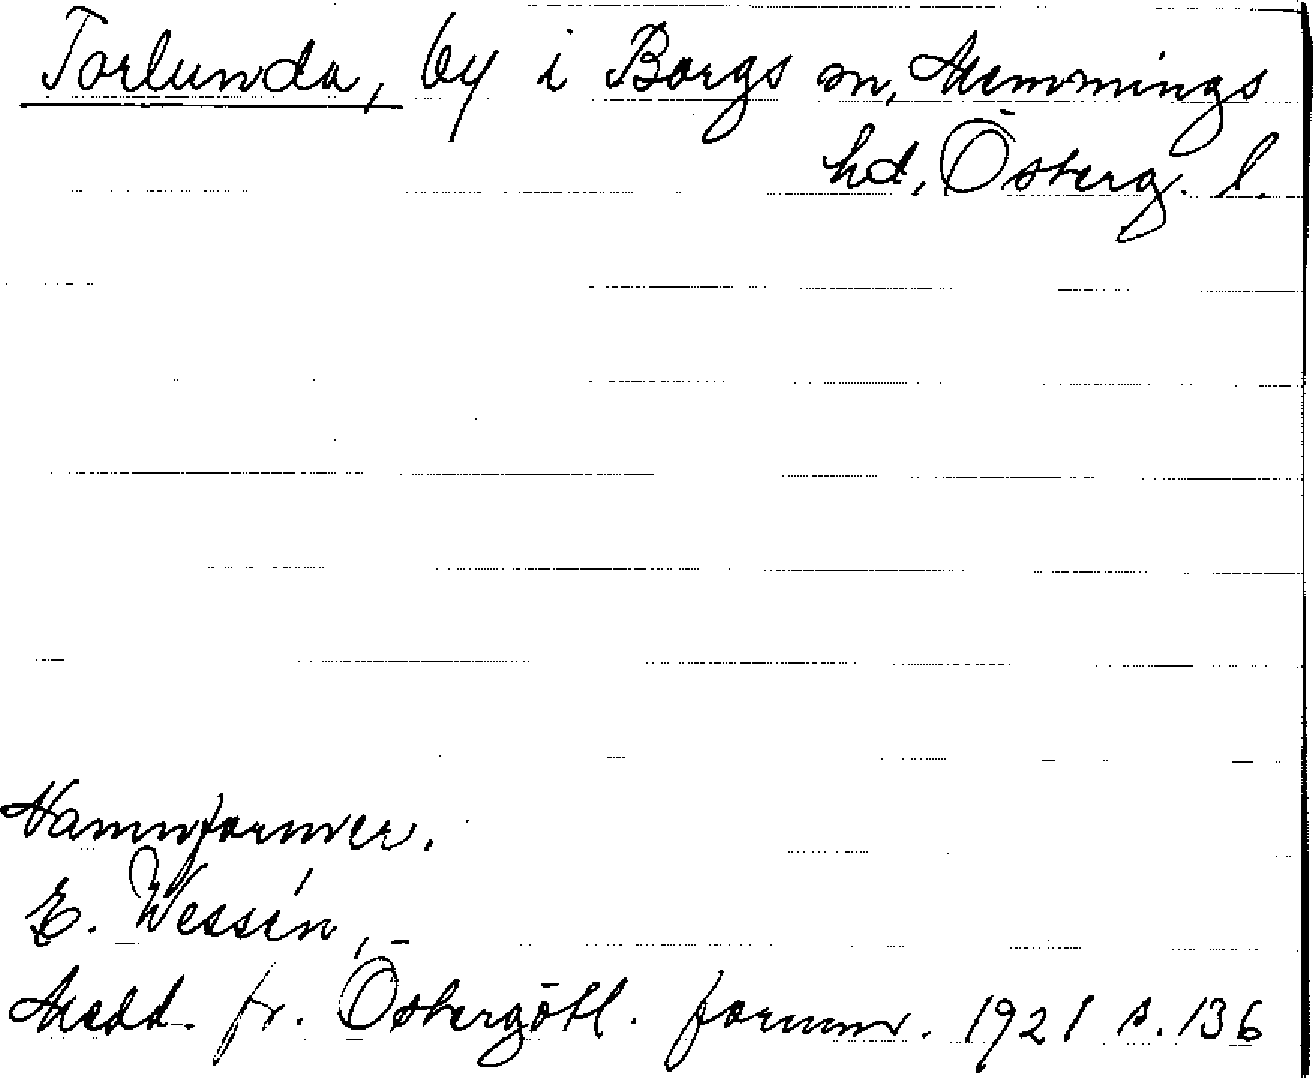 Torlunda, by i Borgs sn, Memmings
hd, Österg. l.
Namnformer.
E. Wessén,
Medd. fr. Östergötl. fornm. 1921 s. 136